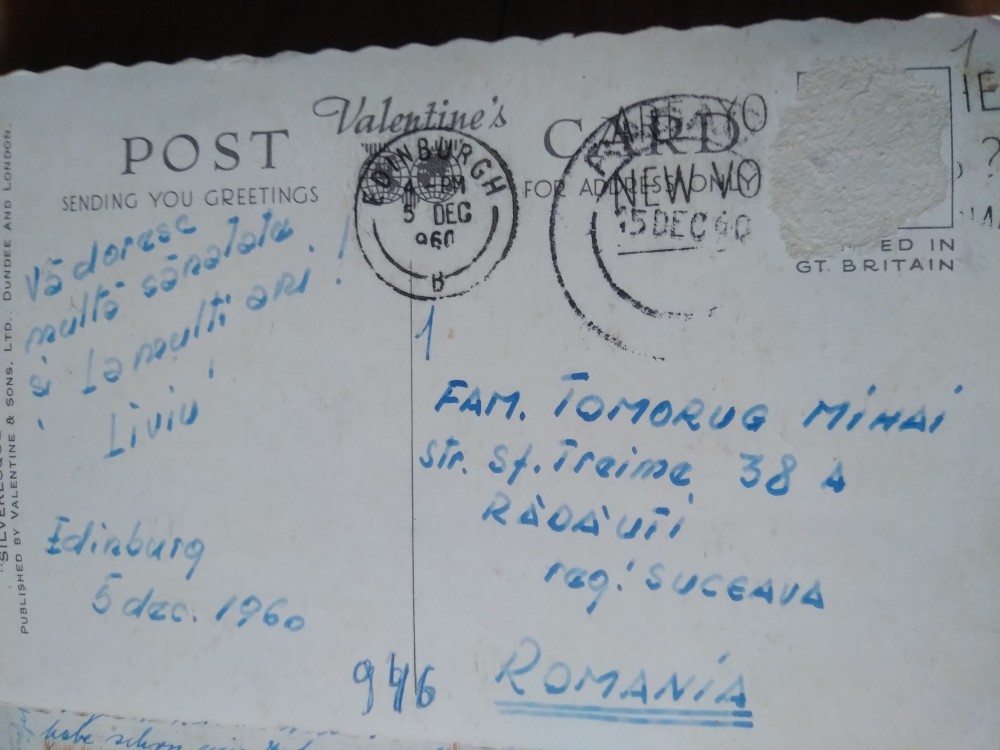 1
Valentine's
POST CARD
SENDING YOU GREETINGS
FOR ADDRESS ONLY
EDINBURGH
4 - PM
5 DEC
960
B
ARE YO
NEW VO
15 DEC 60
IE
?
ED IN
GT. BRITAIN
Vă doresc
multă sănatate
și La multi ani!
Liviu
Edinburg
5 dec. 1960
1
FAM. TOMORUG MIHAI
Str. Sf. Treime 38 A
RĂDĂUTI
reg. SUCEAVA
ROMANIA
946
PUBLISHED BY VALENTINE & SONS, LTD., DUNDEE AND LONDON.
habe schon